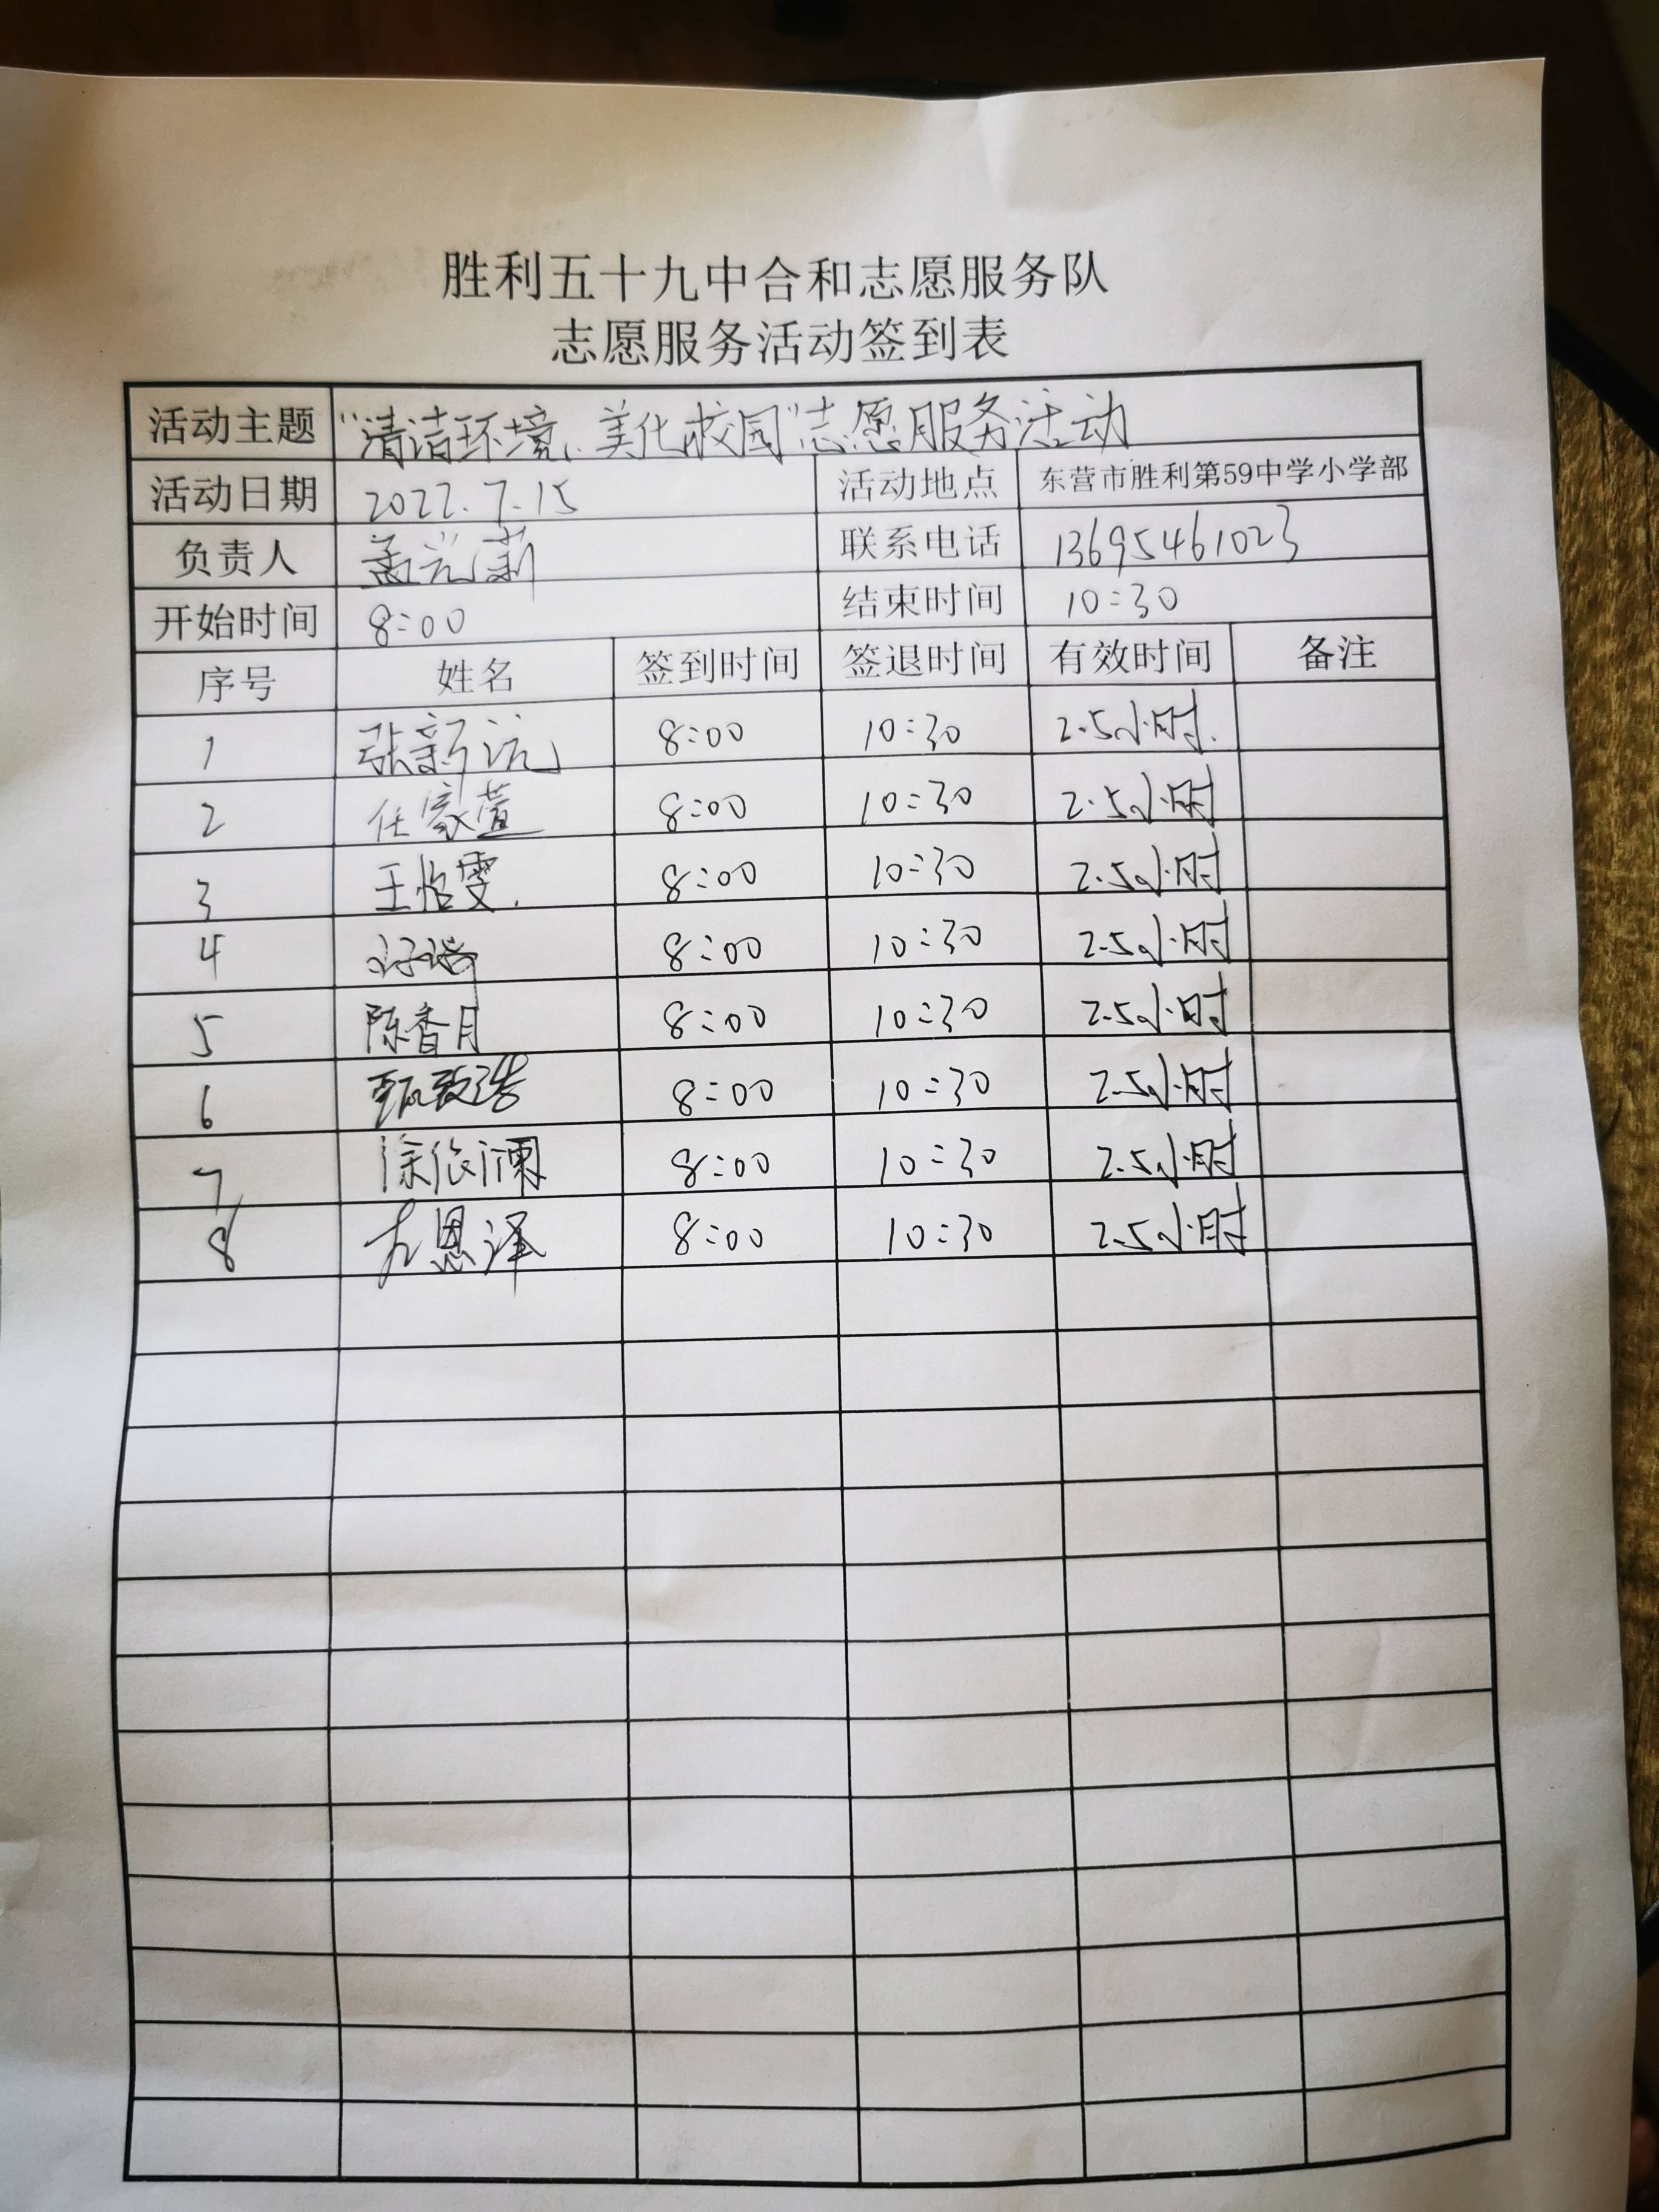 胜利五十九中合和志愿服务队
志愿服务活动签到表
活动主题 "清洁环境、美化校园"志愿服务活动
活动日期 2022.7.15 活动地点 东营市胜利第59中学小学部
负责人 联系电话 13695461023
开始时间 8:00 结束时间 10:30
序号 姓名 签到时间 签退时间 有效时间 备注
1 张新沅 8:00 10:30 2.5小时.
2 任家萱 8:00 10:30 2.5小时
3 王怡雯. 8:00 10:30 2.5小时
4 8:00 10:30 2.5小时
5 陈香月 8:00 10:30 2.5小时
6 甄致浩 8:00 10:30 2.5小时
7 徐依澜 8:00 10:30 2.5小时
8 左恩泽 8:00 10:30 2.5小时